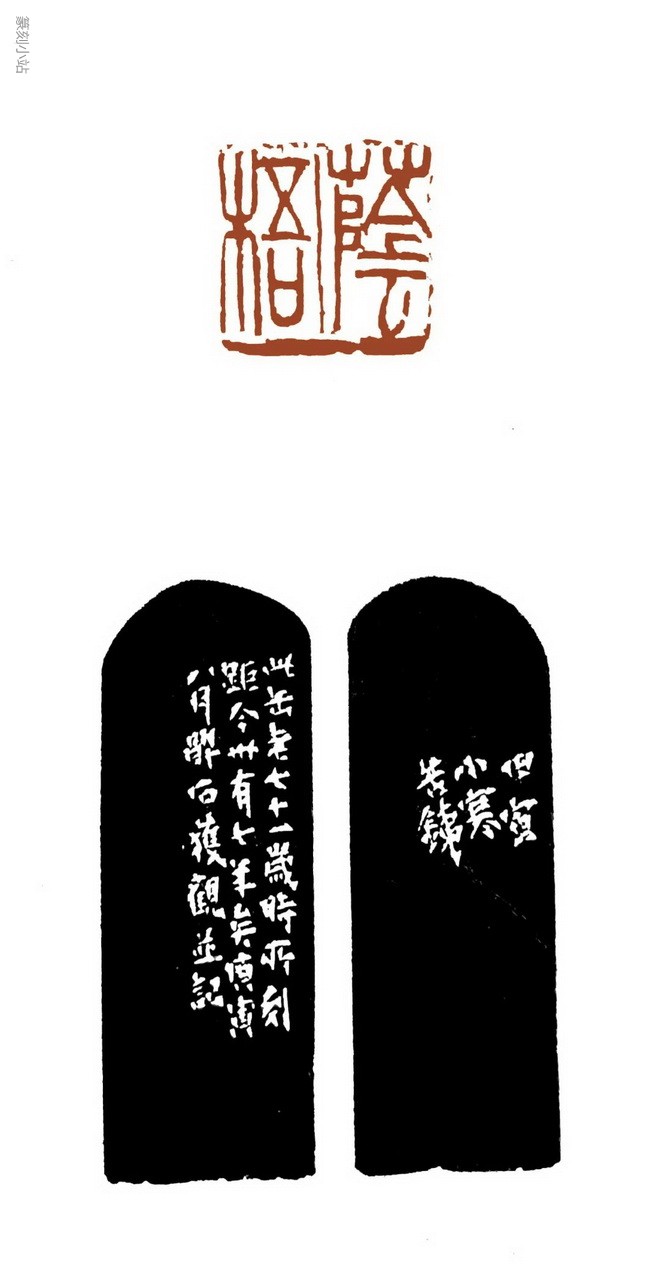 篆刻小站
蔭梧
甲寅
小寒
苦鐵
此缶老七十一歲時所刻
距今卅有七年矣庚寅
八月石獲觀並記